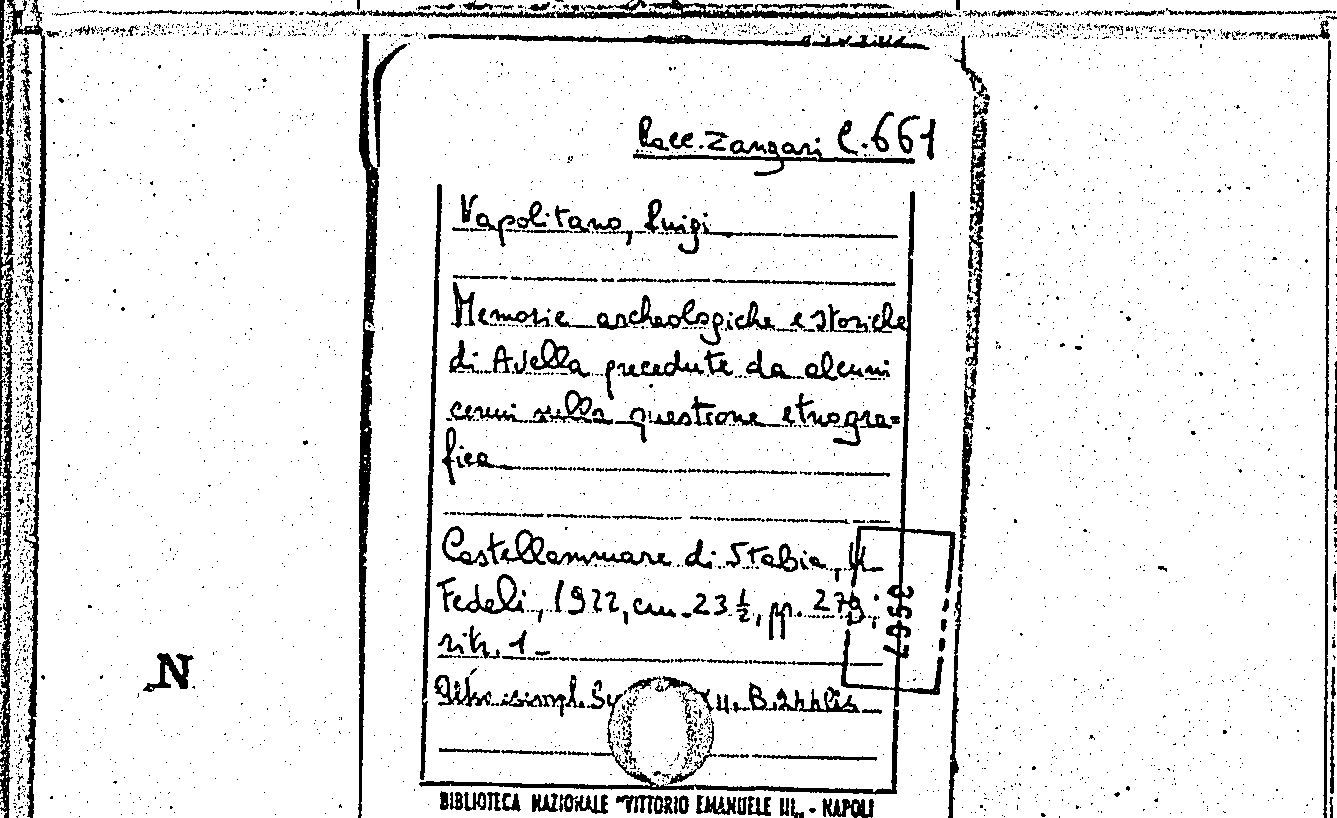 Racc. Zangari C. 661
Napolitano, Luigi
Memorie archeologiche e storiche
di Avella precedute da alcuni
cenni sulla questione etnogra=
fica
Castellammare di Stabia, M.
Fedeli, 1922, cm. 23 ½, pp. 279;
ritr. 1
Altro esempl. B.
3567
N
BIBLIOTECA NAZIONALE "VITTORIO EMANUELE III„ - NAPOLI